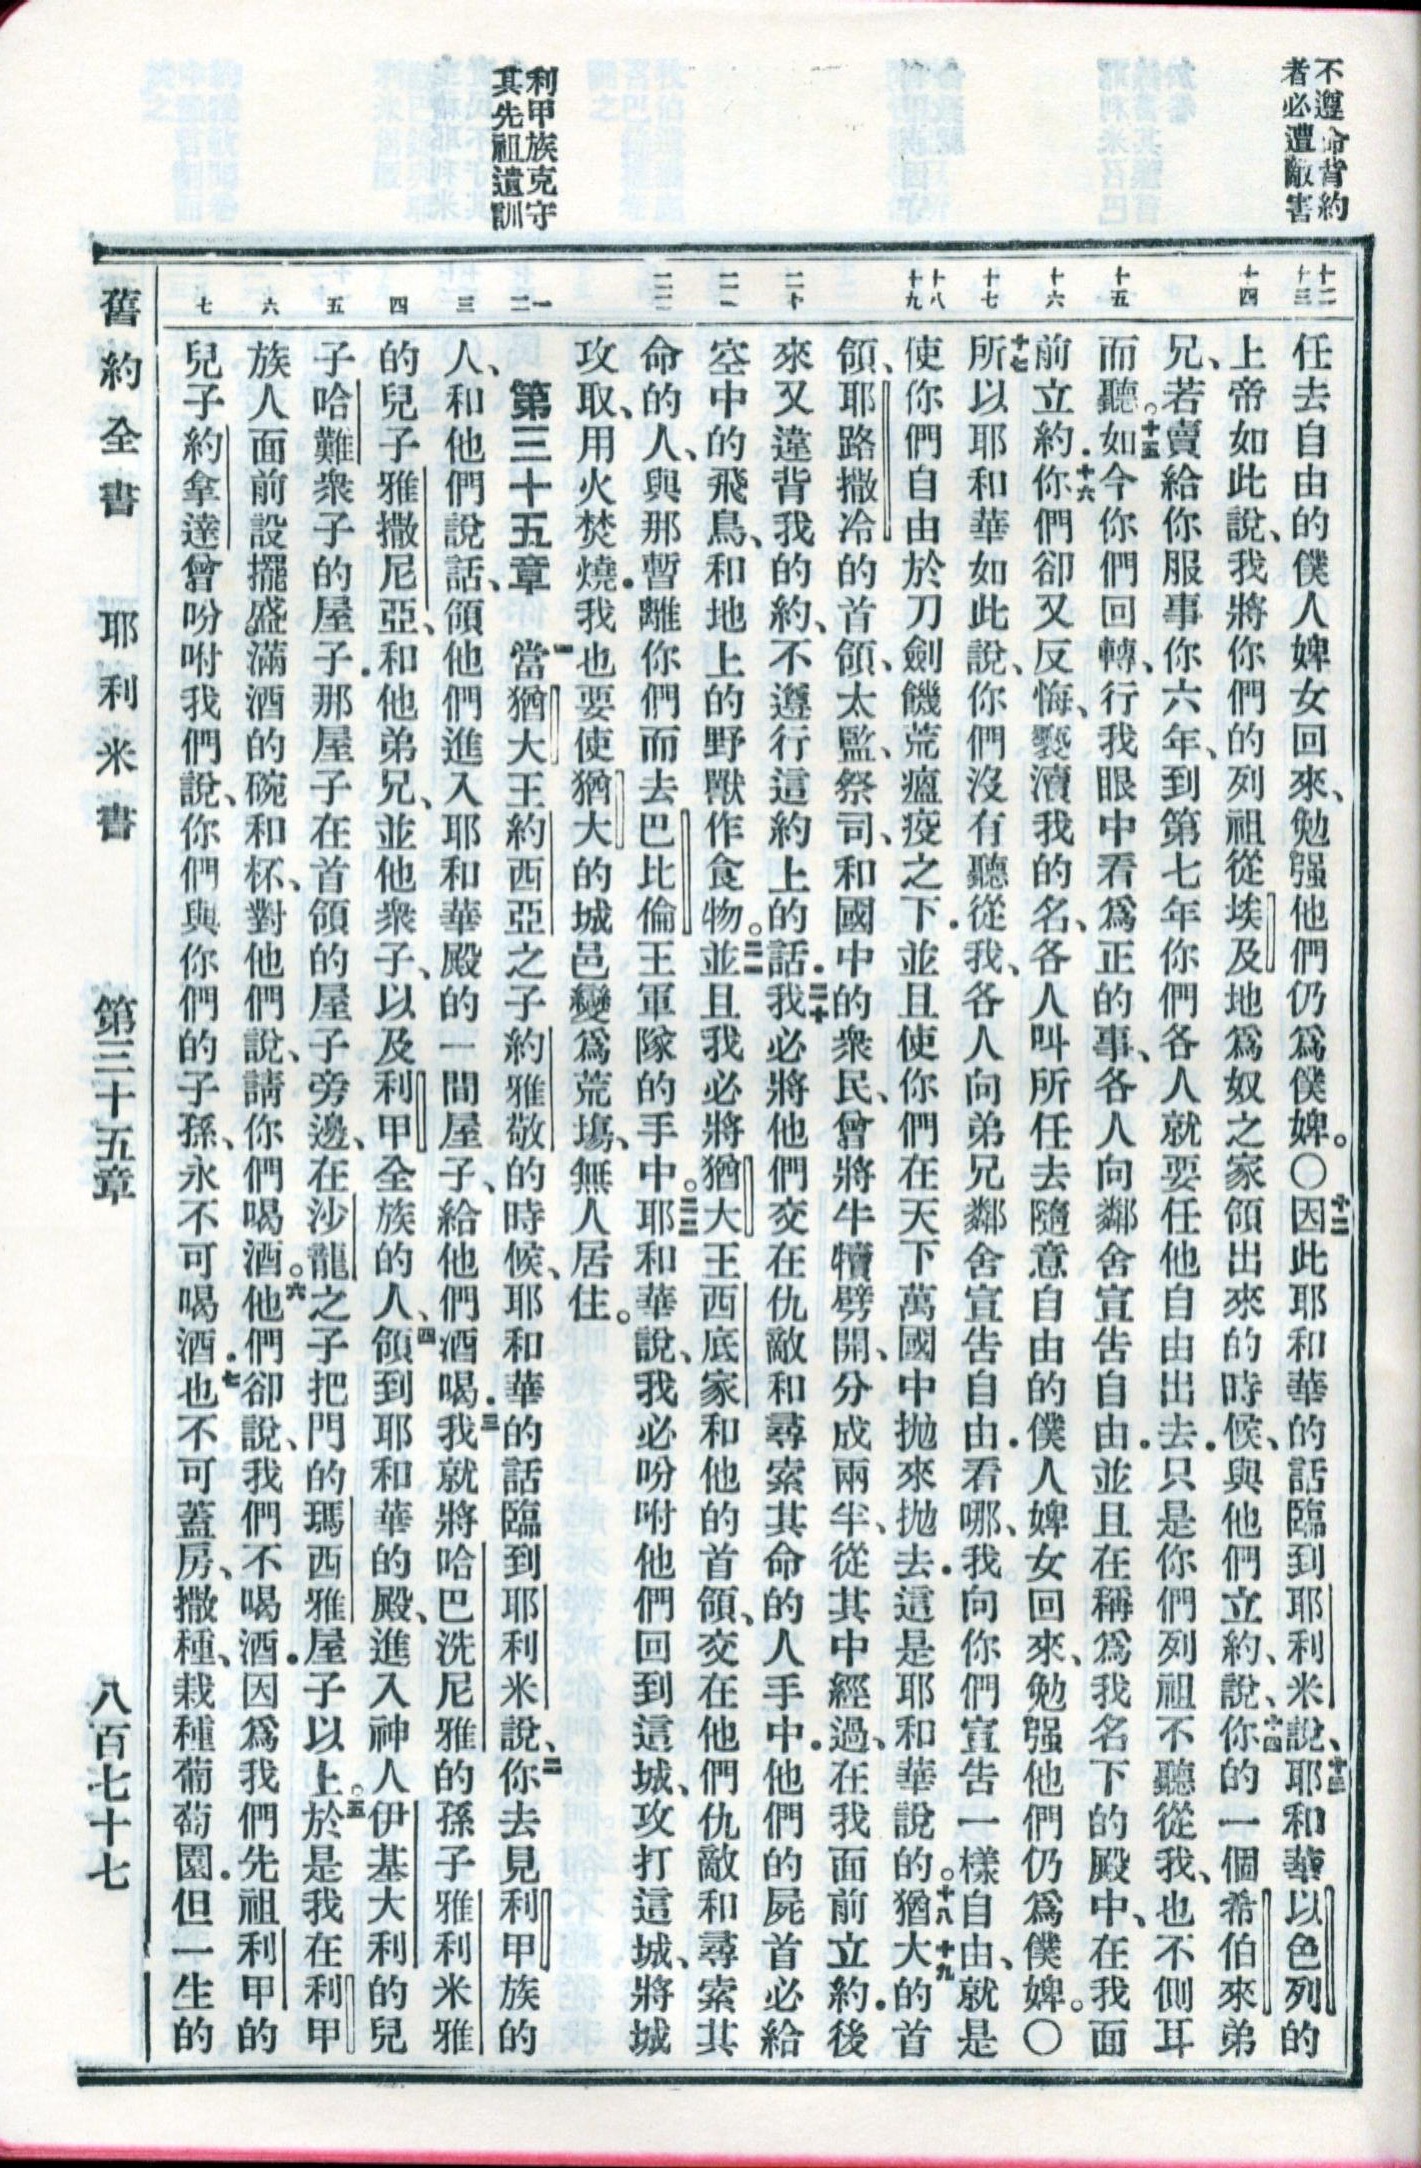 不遵命背約
者必遭敵害
利甲族克守
其先祖遺訓
十二
十三
十四
十五
十六
十七
十八
十九
二十
二一
二二
一
二
三
四
五
六
七
任去自由的僕人婢女回來、勉强他們仍爲僕婢。〇十二因此耶和華的話臨到耶利米說、十三耶和華以色列的
上帝如此說、我將你們的列祖從埃及地爲奴之家領出來的時候、與他們立約、說、十四你的一個希伯來弟
兄、若賣給你服事你六年、到第七年你們各人就要任他自由出去．只是你們列祖不聽從我、也不側耳
而聽。十五如今你們回轉、行我眼中看爲正的事、各人向鄰舍宣吿自由．並且在稱爲我名下的殿中、在我面
前立約．十六你們卻又反悔、褻瀆我的名、各人叫所任去隨意自由的僕人婢女回來、勉强他們仍爲僕婢。〇
十七所以耶和華如此說、你們沒有聽從我、各人向弟兄鄰舍宣吿自由．看哪、我向你們宣吿一樣自由、就是
使你們自由於刀劍饑荒瘟疫之下．並且使你們在天下萬國中拋來拋去．這是耶和華說的。十八十九猶大的首
領、耶路撒冷的首領、太監、祭司、和國中的衆民、曾將牛犢劈開、分成兩半、從其中經過、在我面前立約．後
來又違背我的約、不遵行這約上的話．二十我必將他們交在仇敵和尋索其命的人手中．他們的屍首必給
空中的飛鳥、和地上的野獸作食物。二一並且我必將猶大王西底家和他的首領、交在他們仇敵和尋索其
命的人、與那暫離你們而去巴比倫王軍隊的手中。二二耶和華說、我必吩咐他們回到這城、攻打這城、將城
攻取、用火焚燒．我也要使猶大的城邑變爲荒塲、無人居住。
第三十五章 一當猶大王約西亞之子約雅敬的時候、耶和華的話臨到耶利米說、二你去見利甲族的
人、和他們說話、領他們進入耶和華殿的一間屋子、給他們酒喝．三我就將哈巴洗尼雅的孫子雅利米雅
的兒子雅撒尼亞、和他弟兄、並他衆子、以及利甲全族的人、四領到耶和華的殿、進入神人伊基大利的兒
子哈難衆子的屋子．那屋子在首領的屋子旁邊、在沙龍之子把門的瑪西雅屋子以上。五於是我在利甲
族人面前設擺盛滿酒的碗和杯、對他們說、請你們喝酒。六他們卻說、我們不喝酒．因爲我們先祖利甲的
兒子約拿達曾吩咐我們說、你們與你們的子孫、永不可喝酒．七也不可蓋房、撒種、栽種葡萄園．但一生的
舊約全書　耶利米書　第三十五章　八百七十七